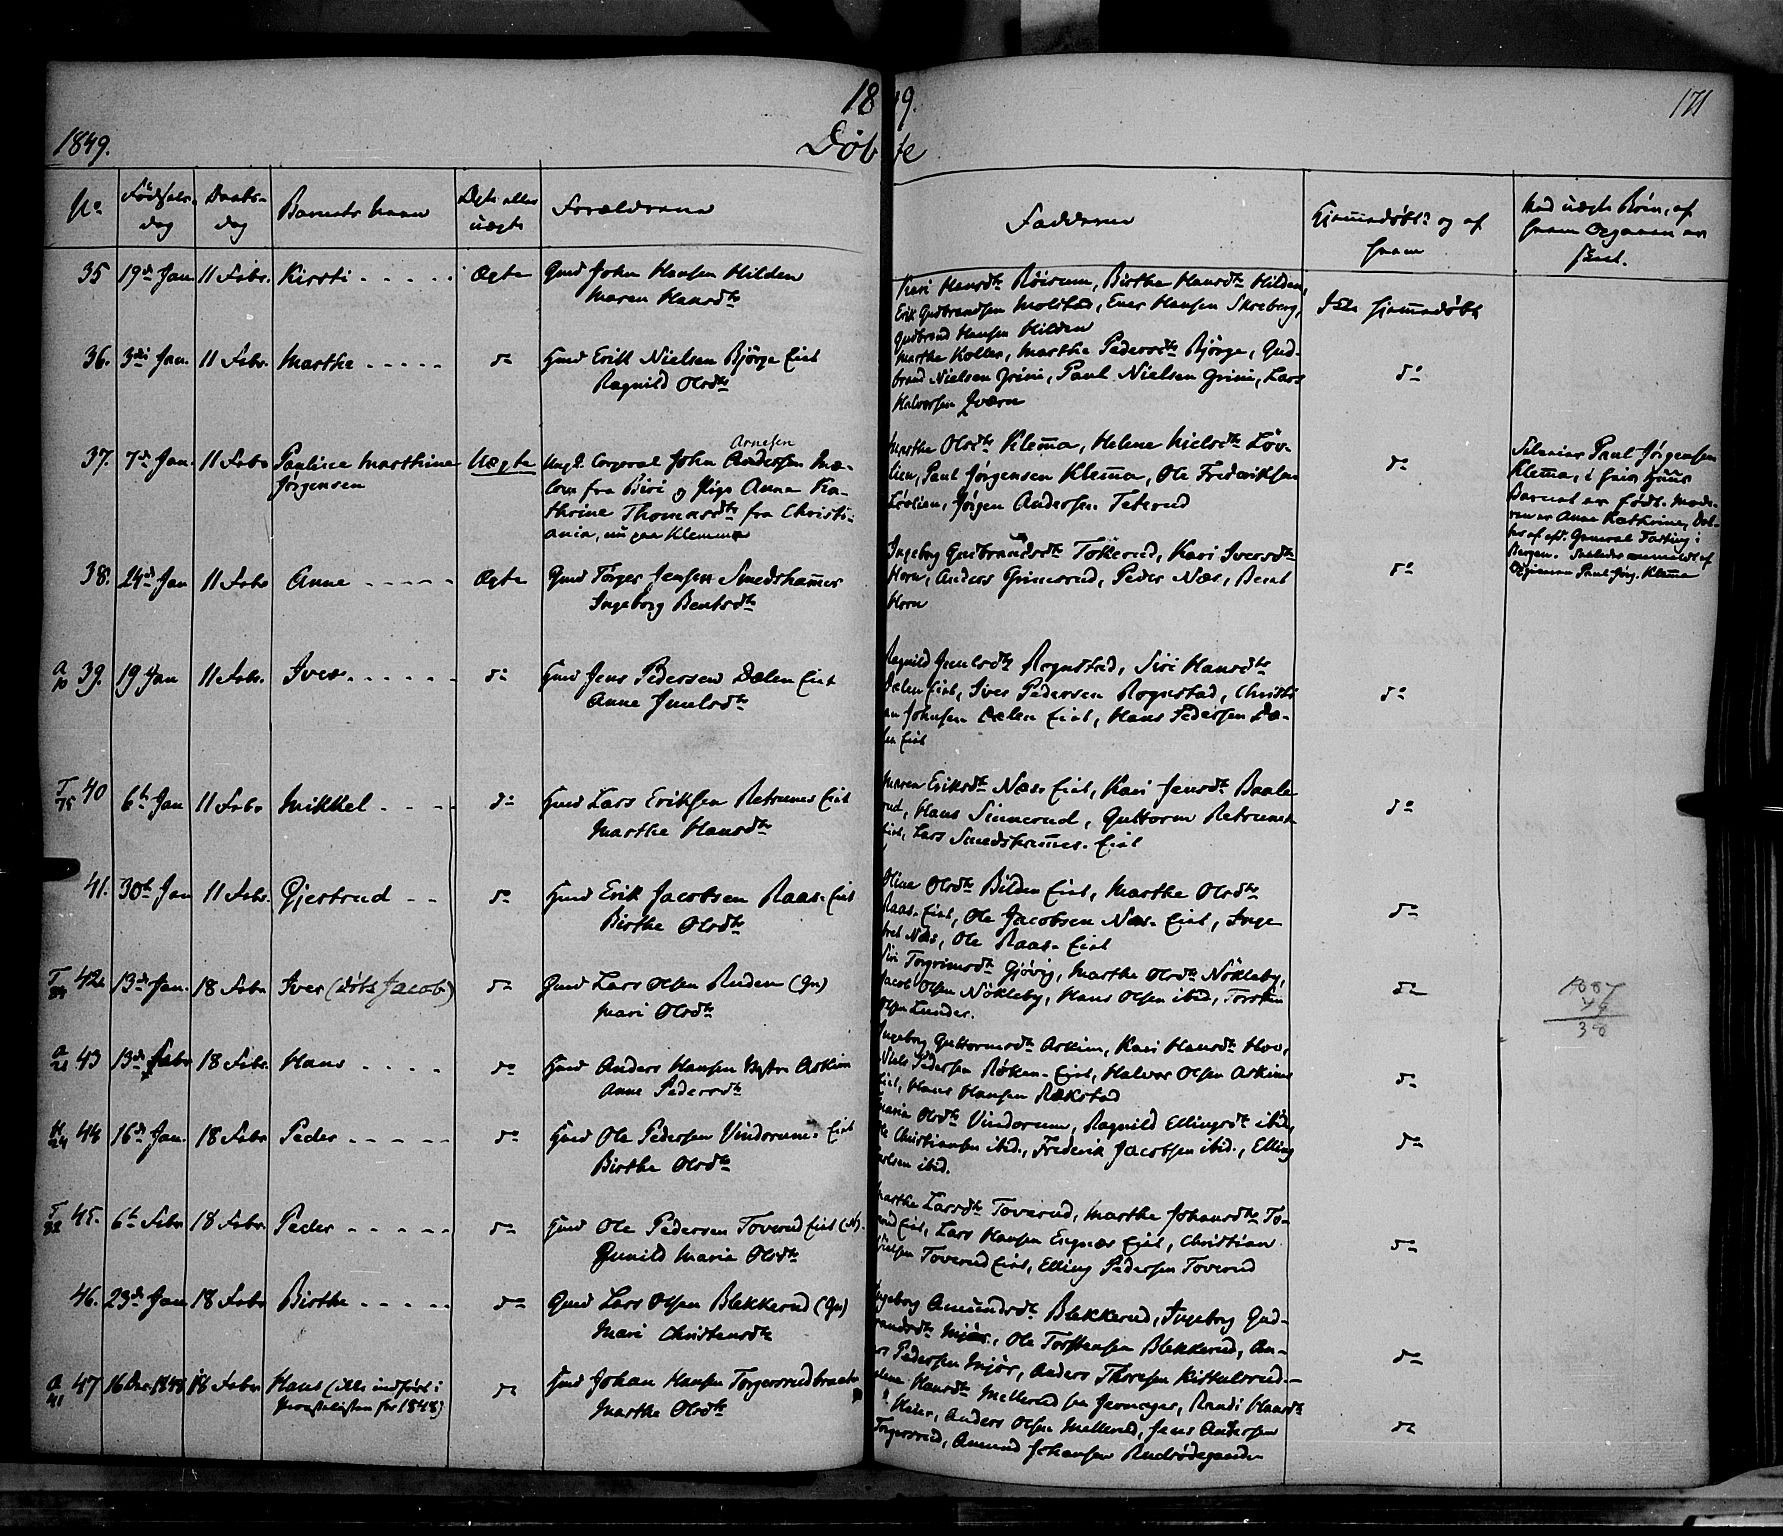 1849.
171
1849.
Døbte
No
Fødsels-
dag
Daabs-
dag
Barnets Navn
Ægte eller
uægte
Forældrene
Fadderne
Hjemmedøbt? og af
hvem
Ved uægte Børn, af
hvem Opgaven er
skeet.
35 19de Jan 11 Febr. Kirsti Ægte Gmd John Hansen Hilden
Maren Hansdtr
Kari Hansdtr Röisum, Birthe Hansdtr Hilden,
Erik Gudbrandsen Molstad, Ener Hansen Skreberg,
Gudbrand Hansen Hilden
Ikke hjemmedøbt
36. 3die Jan. 11 Febr. Marthe do Hmd Erik Nielsen Björge Eiet
Ragnild Olsdtr
Marthe Koller, Marthe Pedersdtr Björge, Gud-
brand Nielsen Grini, Paul Nielsen Grini, Lars
Halvorsen
do
37. 7de Jan. 11 Febr Pauline Marthine
Jörgensen
Uægte
Ungk. Corporal John Andersen Arnesen
fra Biri og Pige Anna Ka-
thrine Thomasdtr fra Christi-
ania, nu paa Klemma
Marthe Olsdtr Klemma, Helene Nielsdtr Löv-
lien, Paul Jörgensen Klemma, Ole Frederiksen
Lövlien, Jörgen Andersen Teterud
do
Paul Jörgensen
Klemma, i hvis Huus
Barnet er født. Mode-
ren er Anne Kathrine, Dat-
ter af afd. General Fasting i
Bergen. Saaledes anmeldt af
Paul Jörg. Klemma
38. 24de Jan 11 Febr Anne Ægte Gmd Torger Jensen Smedshammer
Ingeborg Bentsdtr
Ingeborg Gudbrandsdtr Tokerud, Kari Iversdtr
Horn, Anders Grimsrud, Peder Næs, Bernt
Horn
do
39. 19 Jan 11 Febr. Iver do Hmd Jens Pedersen Dælen Eiet
Anne Juulsdtr
Ragnild Juulsdtr Rognstad, Siri Hansdtr
Dælen Eiet, Iver Pedersen Rognstad, Christi-
an Johnsen Dælen Eiet, Hans Pedersen Dæ-
len Eiet
do
40 6te Jan 11 Febr Mikkel do Hmd Lars Eriksen Retrumes Eiet
Marthe Hansdtr
Maren Eriksdtr Næs Eiet, Kari Jensdtr Baale-
rud, Hans Sinnerud, Guttorm Retrumes
Eiet, Lars Smedshammer Eiet
do
41. 30te Jan 11 Febr. Gjertrud do Hmd Erik Jacobsen Raas Eiet
Birthe Olsdtr
Oline Olsdtr Bilden Eiet, Marthe Olsdtr
Raas Eiet, Ole Jacobsen Næs Eiet, Inge-
bret Næs, Ole Raas Eiet
do
42 13de Jan. 18 Febr Iver (døbt Jacob) do Gmd Lars Olsen Ruden (Gn)
Mari Olsdtr
Siri Torgrimsdtr Gjövig, Marthe Olsdtr Nökleby,
Jacob Olsen Nökleby, Hans Olsen ibid, Torsten
Olsen Lunder.
do
1887
49
38
43 13de Febr 18 Febr. Hans do Hmd Anders Hansen Askim
Anne Pedersdtr
Ingeborg Guttormsdtr Askim, Kari Hansdtr Hov,
Niels Pedersen Röken Eiet, Halvor Olsen Askim
Eiet, Hans Hansen Rækstad
do
44 16de Jan. 18 Febr Peder do Hmd Ole Pedersen Vindorum Eiet
Birthe Olsdtr
Maria Olsdtr Vindorum, Ragnild Ellingsdtr ibid,
Ole Christiansen ibid., Frederik Jacobsen ibid., Elling
Carlsen ibid.
do
45. 6te Febr 18 Febr. Peder do Hmd Ole Pedersen Toverud Eiet
Gunild Maria Olsdtr
Marthe Larsdtr Toverud, Marthe Johansdtr To-
verud Eiet, Lars Hansen Engnæs Eiet, Christian
Toverud Eiet, Elling Pedersen Toverud
do
46. 23de Jan 18 Febr Birthe do Gmd Lars Olsen Blekkerud (Gn)
Mari Christensdtr
Ingeborg Amundsdtr Blekkerud, Ingeborg Gud-
brandsdtr Mjör, Ole Torstensen Blekkerud, An-
ders Pedersen Mjör, Anders Thoresen Kittelsrud
do
47 16 Dec. 1848 18 Febr Hans (ikke indført i
for 1848) do Hmd Johan Hansen Torgersrudbraaten
Marthe Olsdtr
Hansdtr Mellerud fra Jevnager, Randi Hansdtr
Heier, Anders Olsen Mellerud, Jens Andersen
Torgersrud, Amund Johansen Rudsödegaarden
do